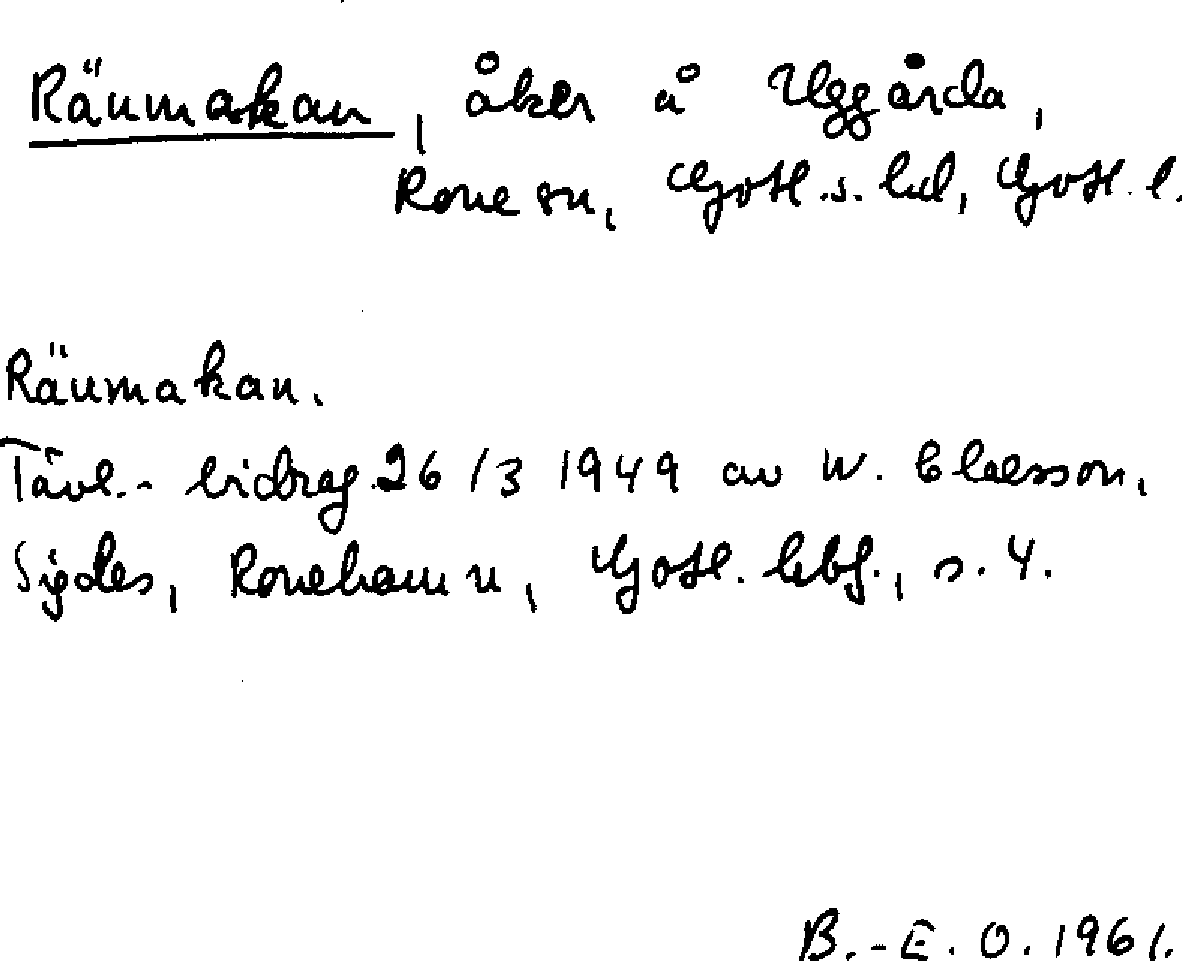 Räumakan, åker å Uggårda,
Rone sn, Gotl. s. hd, Gotl. l.
Räumakan.
Tävl.- bidrag 26/3 1949 av W. Claesson,
Sigdes, Ronehamn, Gotl. s. 4.
B.-E. O. 1961.